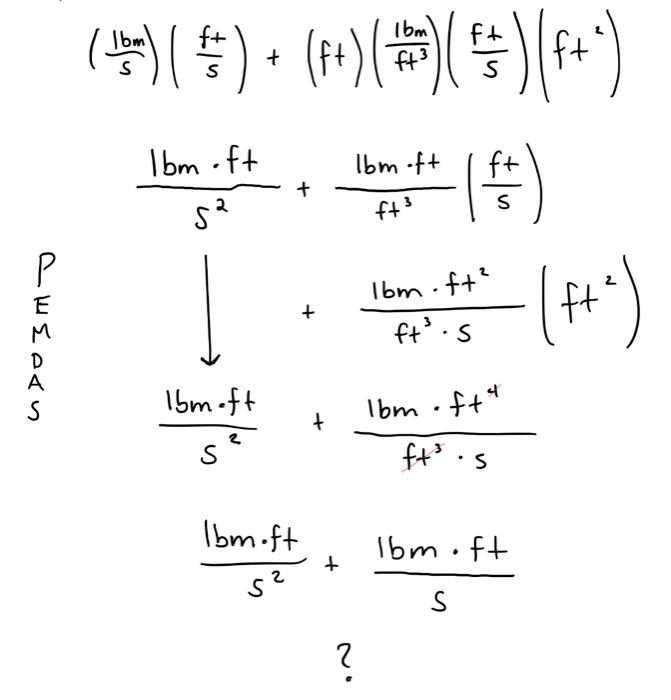 (lbm/s)(ft/s) + (ft)(lbm/ft³)(ft/s)(ft²)
lbm·ft/s² + lbm·ft/ft³ (ft/s)
+ lbm·ft²/ft³·s (ft²)
PEMDAS
lbm·ft/s² + lbm·ft⁴/ft³·s
lbm·ft/s² + lbm·ft/s
?